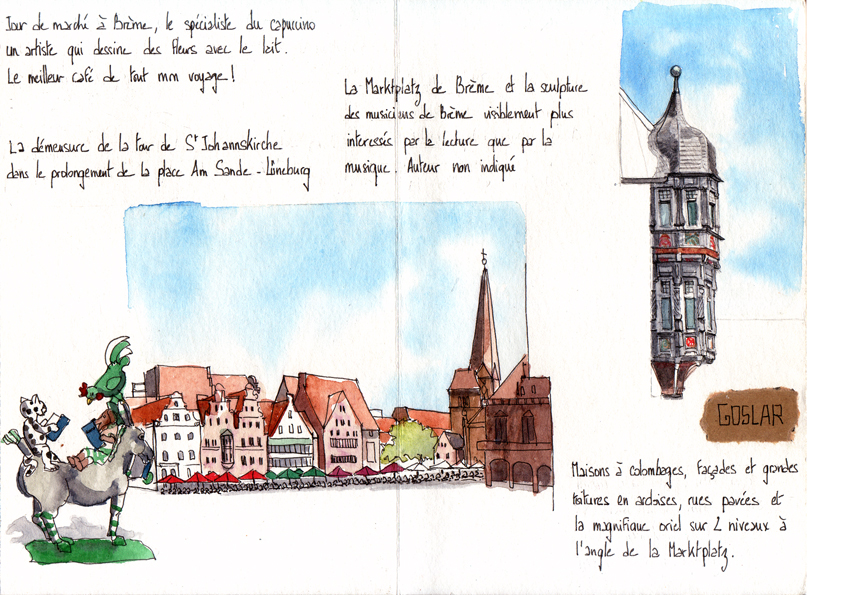 Jour de marché à Brème, le spécialiste du capuccino
un artiste qui dessine des fleurs avec le lait.
Le meilleur café de tout mon voyage!
La démensure de la tour de St Johanniskirche
dans le prolongement de la place Am Sande - Lüneburg
La Marktplatz de Brème et la sculpture
des musiciens de Brème visiblement plus
interessés par la lecture que par la
musique. Auteur non indiqué
GOSLAR
Maisons à colombages, façades et grandes
toitures en ardoises, rues pavées et
la magnifique oriel sur 2 niveaux à
l'angle de la Marktplatz.